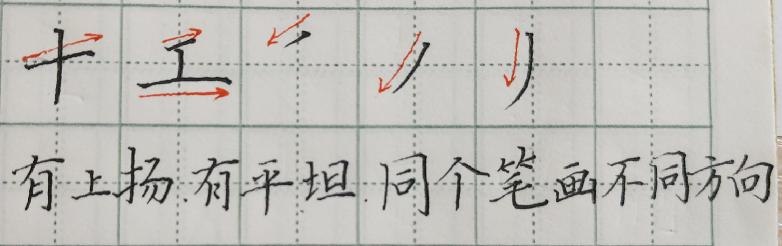 十 工
有上扬.有平坦.同个笔画不同方向